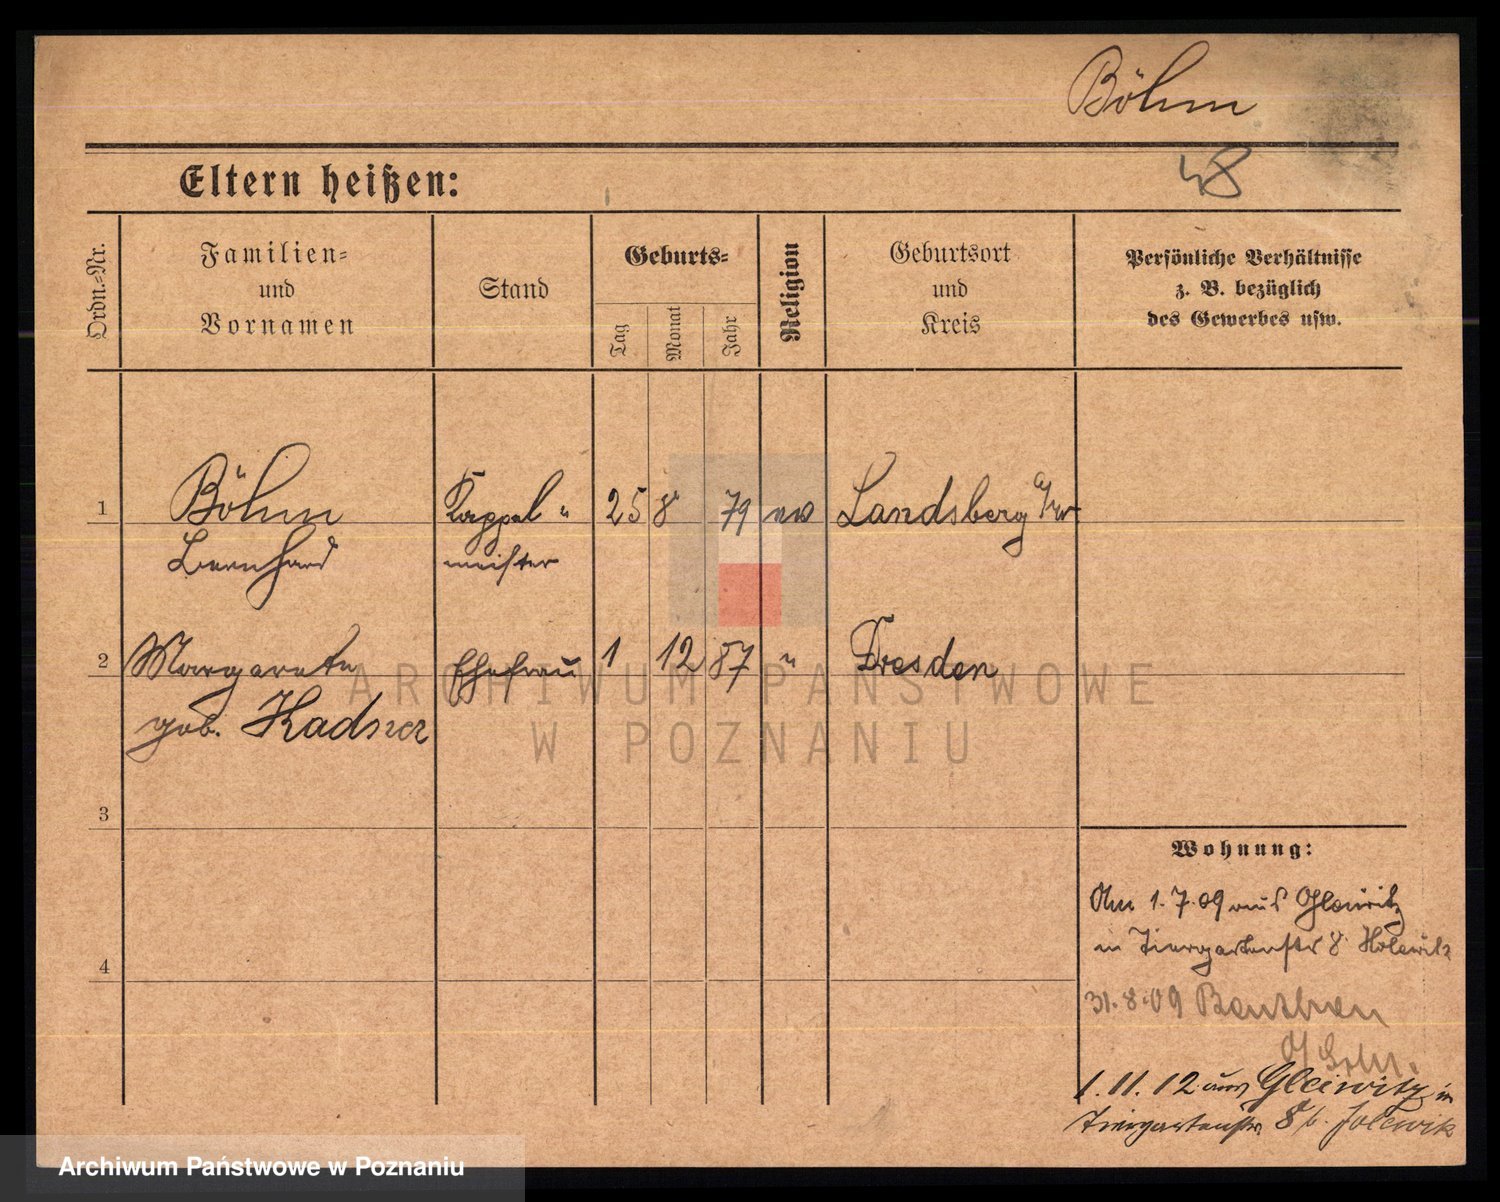 Böhm
48
Eltern heißen:
Ordn.-Nr.
Familien-
und
Vornamen
Stand
Geburts-
Tag
Monat
Jahr
Religion
Geburtsort
und
Kreis
Persönliche Verhältnisse
z. B. bezüglich
des Gewerbes usw.
1 Böhm Kappel- 25 8 79 ev Landsberg a/W
Bernhard meister
2 Margarete Ehefrau 1 12 87 " Dresden
geb. Kadner
3
4
Wohnung:
Am 1.7.09 aus Gleiwitz
in Tiergartenstr 8
31.8.09 Beuthen
1.11.12 aus Gleiwitz in
Tiergartenstr. 8 b.
ARCHIWUM PAŃSTWOWE
W POZNANIU
Archiwum Państwowe w Poznaniu